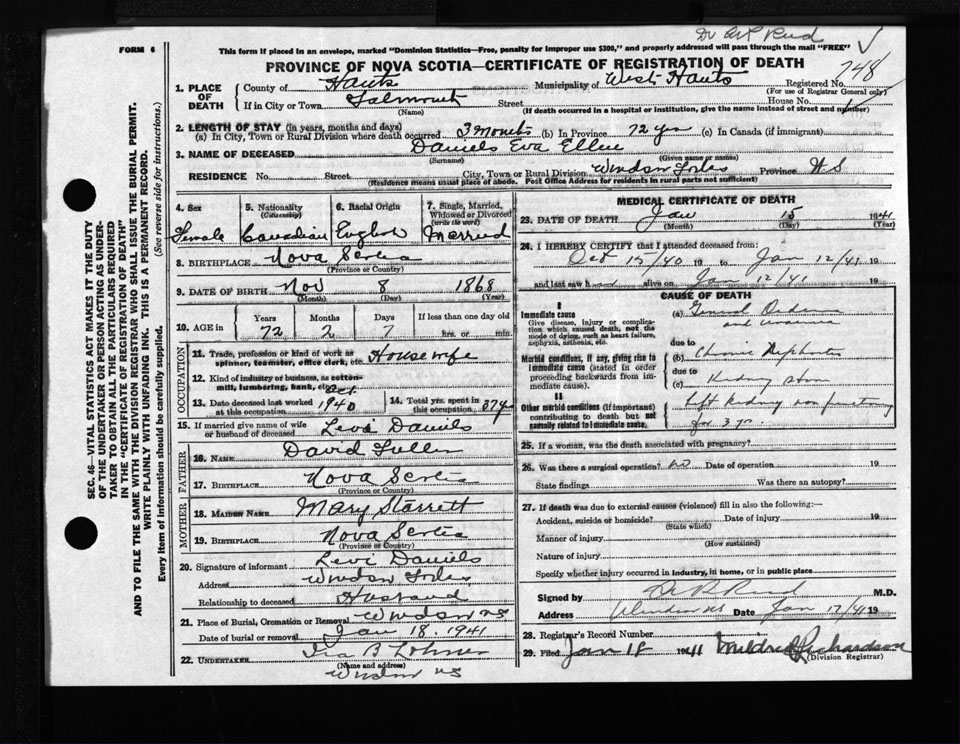 Dr A R Reid
FORM 6
This form if placed in an envelope, marked "Dominion Statistics—Free, penalty for improper use $300," and properly addressed will pass through the mail "FREE"
PROVINCE OF NOVA SCOTIA—CERTIFICATE OF REGISTRATION OF DEATH
748
1. PLACE OF DEATH
County of Hants Municipality of West Hants Registered No.
(For use of Registrar General only)
If in City or Town Falmouth Street House No.
(Name) (If death occurred in a hospital or institution, give the name instead of street and number)
2. LENGTH OF STAY (in years, months and days)
(a) In City, Town or Rural Division where death occurred 3 Months (b) In Province 72 yrs (c) In Canada (if immigrant)
3. NAME OF DECEASED Daniels Eva Ellen
(Surname) (Given name or names)
RESIDENCE No. Street City, Town or Rural Division Windsor Forks Province N S
(Residence means usual place of abode. Post Office Address for residents in rural parts not sufficient)
4. Sex Female
5. Nationality (Citizenship) Canadian
6. Racial Origin English
7. Single, Married, Widowed or Divorced (write the word) Married
8. BIRTHPLACE Nova Scotia
(Province or Country)
9. DATE OF BIRTH Nov 8 1868
(Month) (Day) (Year)
10. AGE in Years Months Days If less than one day old
72 2 7 hrs. or min.
OCCUPATION
11. Trade, profession or kind of work as spinner, teamster, office clerk, etc. Housewife
12. Kind of industry or business, as cotton-mill, lumbering, bank, etc.
13. Date deceased last worked at this occupation Oct 1940
14. Total yrs. spent in this occupation
15. If married give name of wife or husband of deceased Levi Daniels
FATHER
16. NAME David
17. BIRTHPLACE Nova Scotia
(Province or Country)
MOTHER
18. MAIDEN NAME Mary Starrett
19. BIRTHPLACE Nova Scotia
(Province or Country)
20. Signature of informant Levi Daniels
Address Windsor Forks
Relationship to deceased Husband
21. Place of Burial, Cremation or Removal Windsor NS
Date of burial or removal Jan 18, 1941
22. UNDERTAKER Ira B Lohnes
(Name and address)
Windsor NS
MEDICAL CERTIFICATE OF DEATH
23. DATE OF DEATH Jan 15 1941
(Month) (Day) (Year)
24. I HEREBY CERTIFY that I attended deceased from:
Oct 15/40 19 to Jan 12/41 19
and last saw h alive on Jan 12/41 19
CAUSE OF DEATH
I
Immediate cause
Give disease, injury or complication which caused death, not the mode of dying, such as heart failure, asphyxia, asthenia, etc.
(a) General Oedema
and Uraemia
due to
Morbid conditions, if any, giving rise to immediate cause (stated in order proceeding backwards from immediate cause).
(b) Chronic Nephritis
due to
(c) Kidney stone
II
Other morbid conditions (if important) contributing to death but not causally related to immediate cause.
Left Kidney non functioning
for 3 yrs.
25. If a woman, was the death associated with pregnancy?
26. Was there a surgical operation? no Date of operation 19
State findings Was there an autopsy?
27. If death was due to external causes (violence) fill in also the following:
Accident, suicide or homicide? Date of injury 19
(State which)
Manner of injury
(How sustained)
Nature of injury
Specify whether injury occurred in industry, in home, or in public place
Signed by A R Reid M.D.
Address Windsor NS Date Jan 17/41 19
28. Registrar's Record Number
29. Filed Jan 18 1941 Mildred Richardson
(Division Registrar)
SEC. 46—VITAL STATISTICS ACT MAKES IT THE DUTY
OF THE UNDERTAKER OR PERSON ACTING AS UNDER-
TAKER TO OBTAIN ALL THE PARTICULARS REQUIRED
IN THE "CERTIFICATE OF REGISTRATION OF DEATH"
AND TO FILE THE SAME WITH THE DIVISION REGISTRAR WHO SHALL ISSUE THE BURIAL PERMIT.
WRITE PLAINLY WITH UNFADING INK. THIS IS A PERMANENT RECORD.
Every item of information should be carefully supplied. (See reverse side for instructions.)